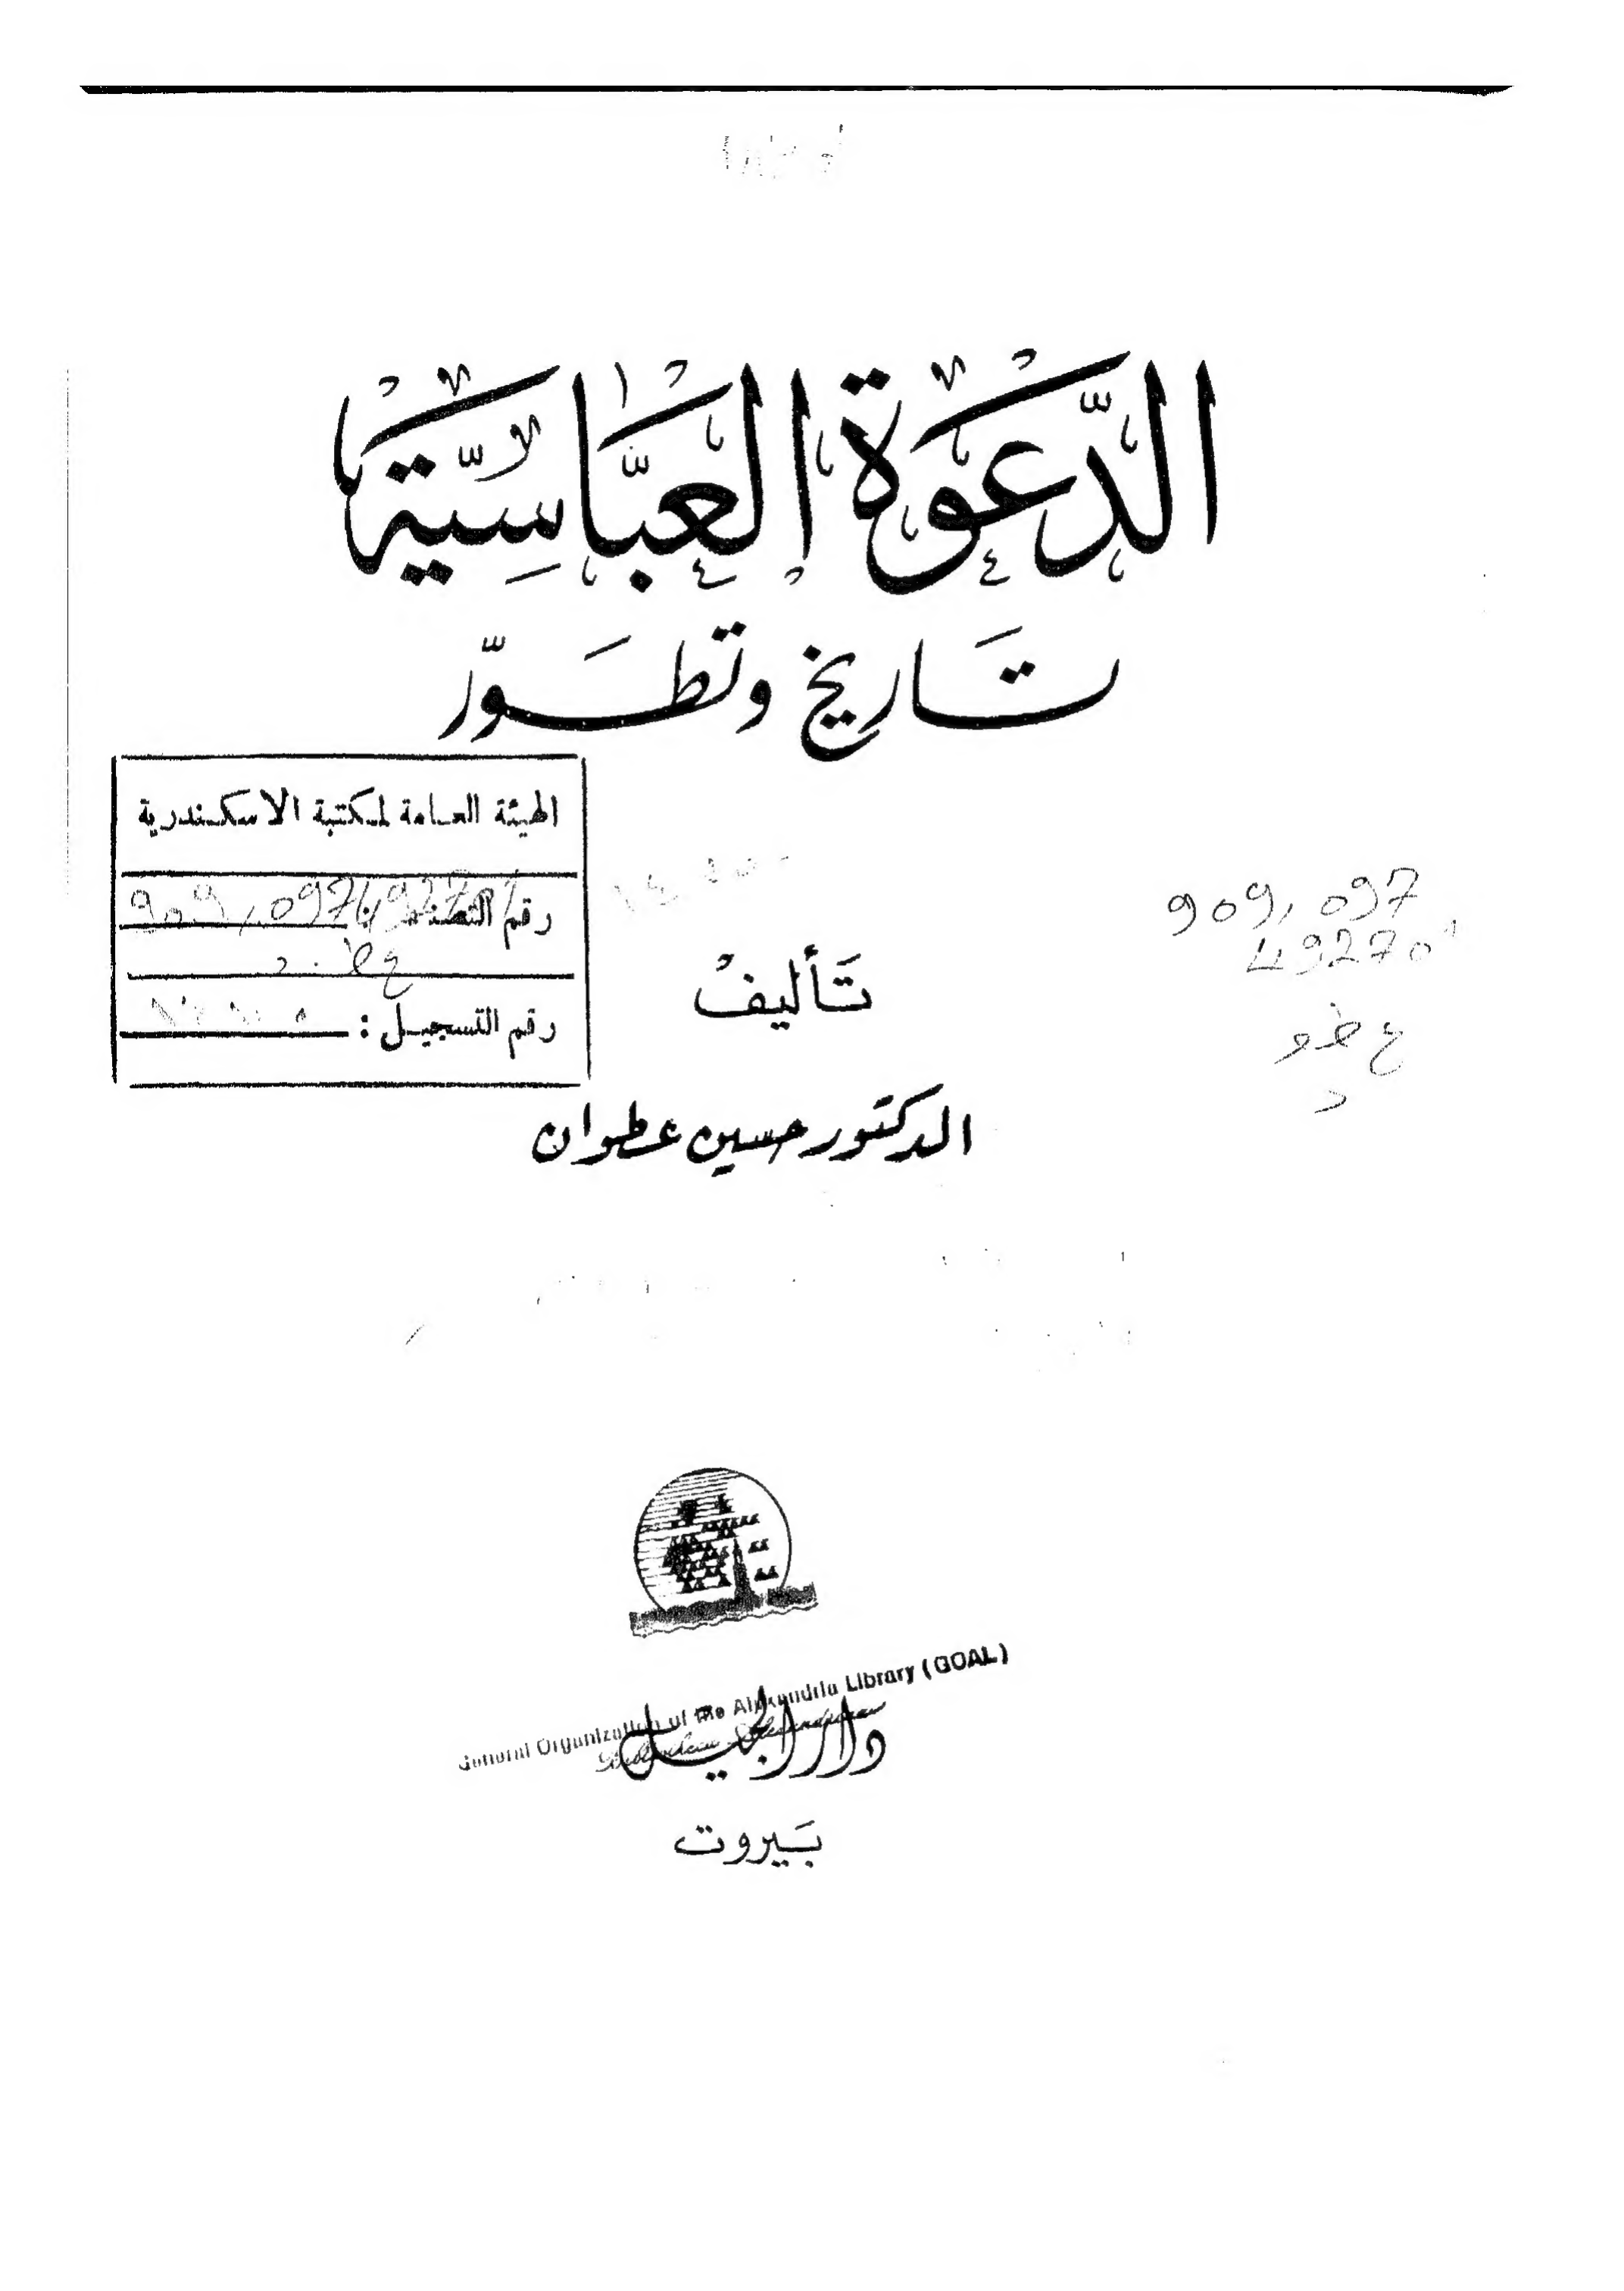 الدَّعوَة العَبَّاسِيَّة
تَاريخ وتطَوّر
الهيئة العامة لمكتبة الاسكندرية
رقم التصنيف 909,09749270
رقم التسجيل :
909,097
49270
تَأليفْ
الدكتور حسين عطوان
General Organization of the Alexandria Library (GOAL)
Bibliotheca Alexandrina
دار الجيل
بَيروت